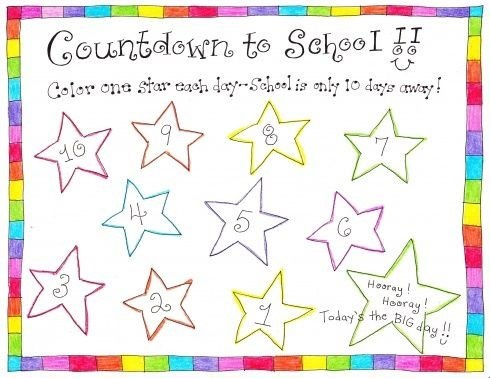 Countdown to School !!
Color one star each day--School is only 10 days away!
10 9 8 7
4 5 6
3 2 1
Hooray!
Hooray!
Today's the BIG day!!